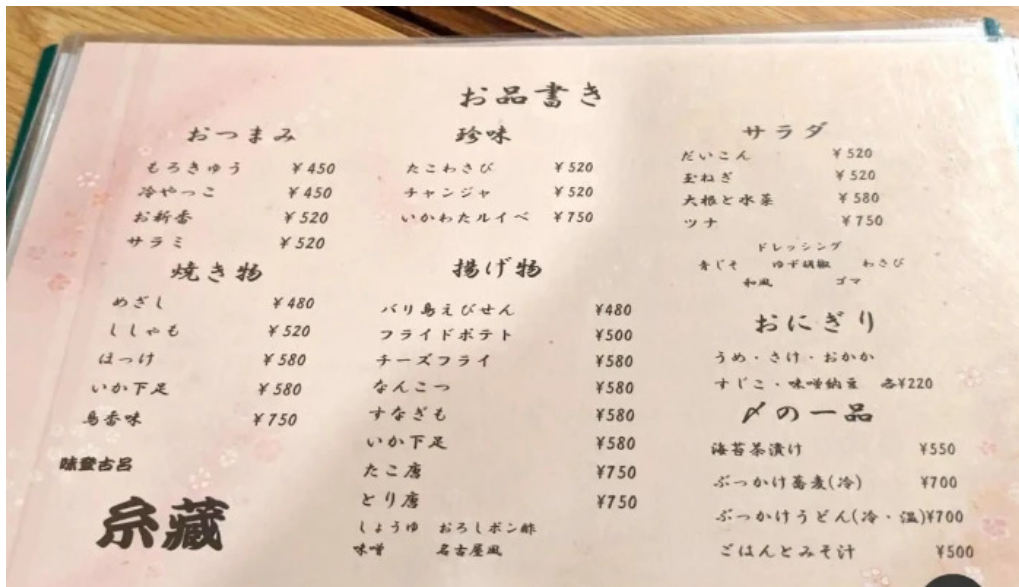 お品書き
おつまみ
もろきゅう ¥450
冷やっこ ¥450
お新香 ¥520
サラミ ¥520
焼き物
めざし ¥480
ししゃも ¥520
ほっけ ¥580
いか下足 ¥580
鳥香味 ¥750
味登古呂
糸蔵
珍味
たこわさび ¥520
チャンジャ ¥520
いかわたルイベ ¥750
揚げ物
バリ島えびせん ¥480
フライドポテト ¥500
チーズフライ ¥580
なんこつ ¥580
すなぎも ¥580
いか下足 ¥580
たこ唐 ¥750
とり唐 ¥750
しょうゆ おろしポン酢
味噌 名古屋風
サラダ
だいこん ¥520
玉ねぎ ¥520
大根と水菜 ¥580
ツナ ¥750
ドレッシング
青じそ ゆず胡椒 わさび
和風 ゴマ
おにぎり
うめ・さけ・おかか
すじこ・味噌納豆 各¥220
〆の一品
海苔茶漬け ¥550
ぶっかけ蕎麦(冷) ¥700
ぶっかけうどん(冷・温)¥700
ごはんとみそ汁 ¥500